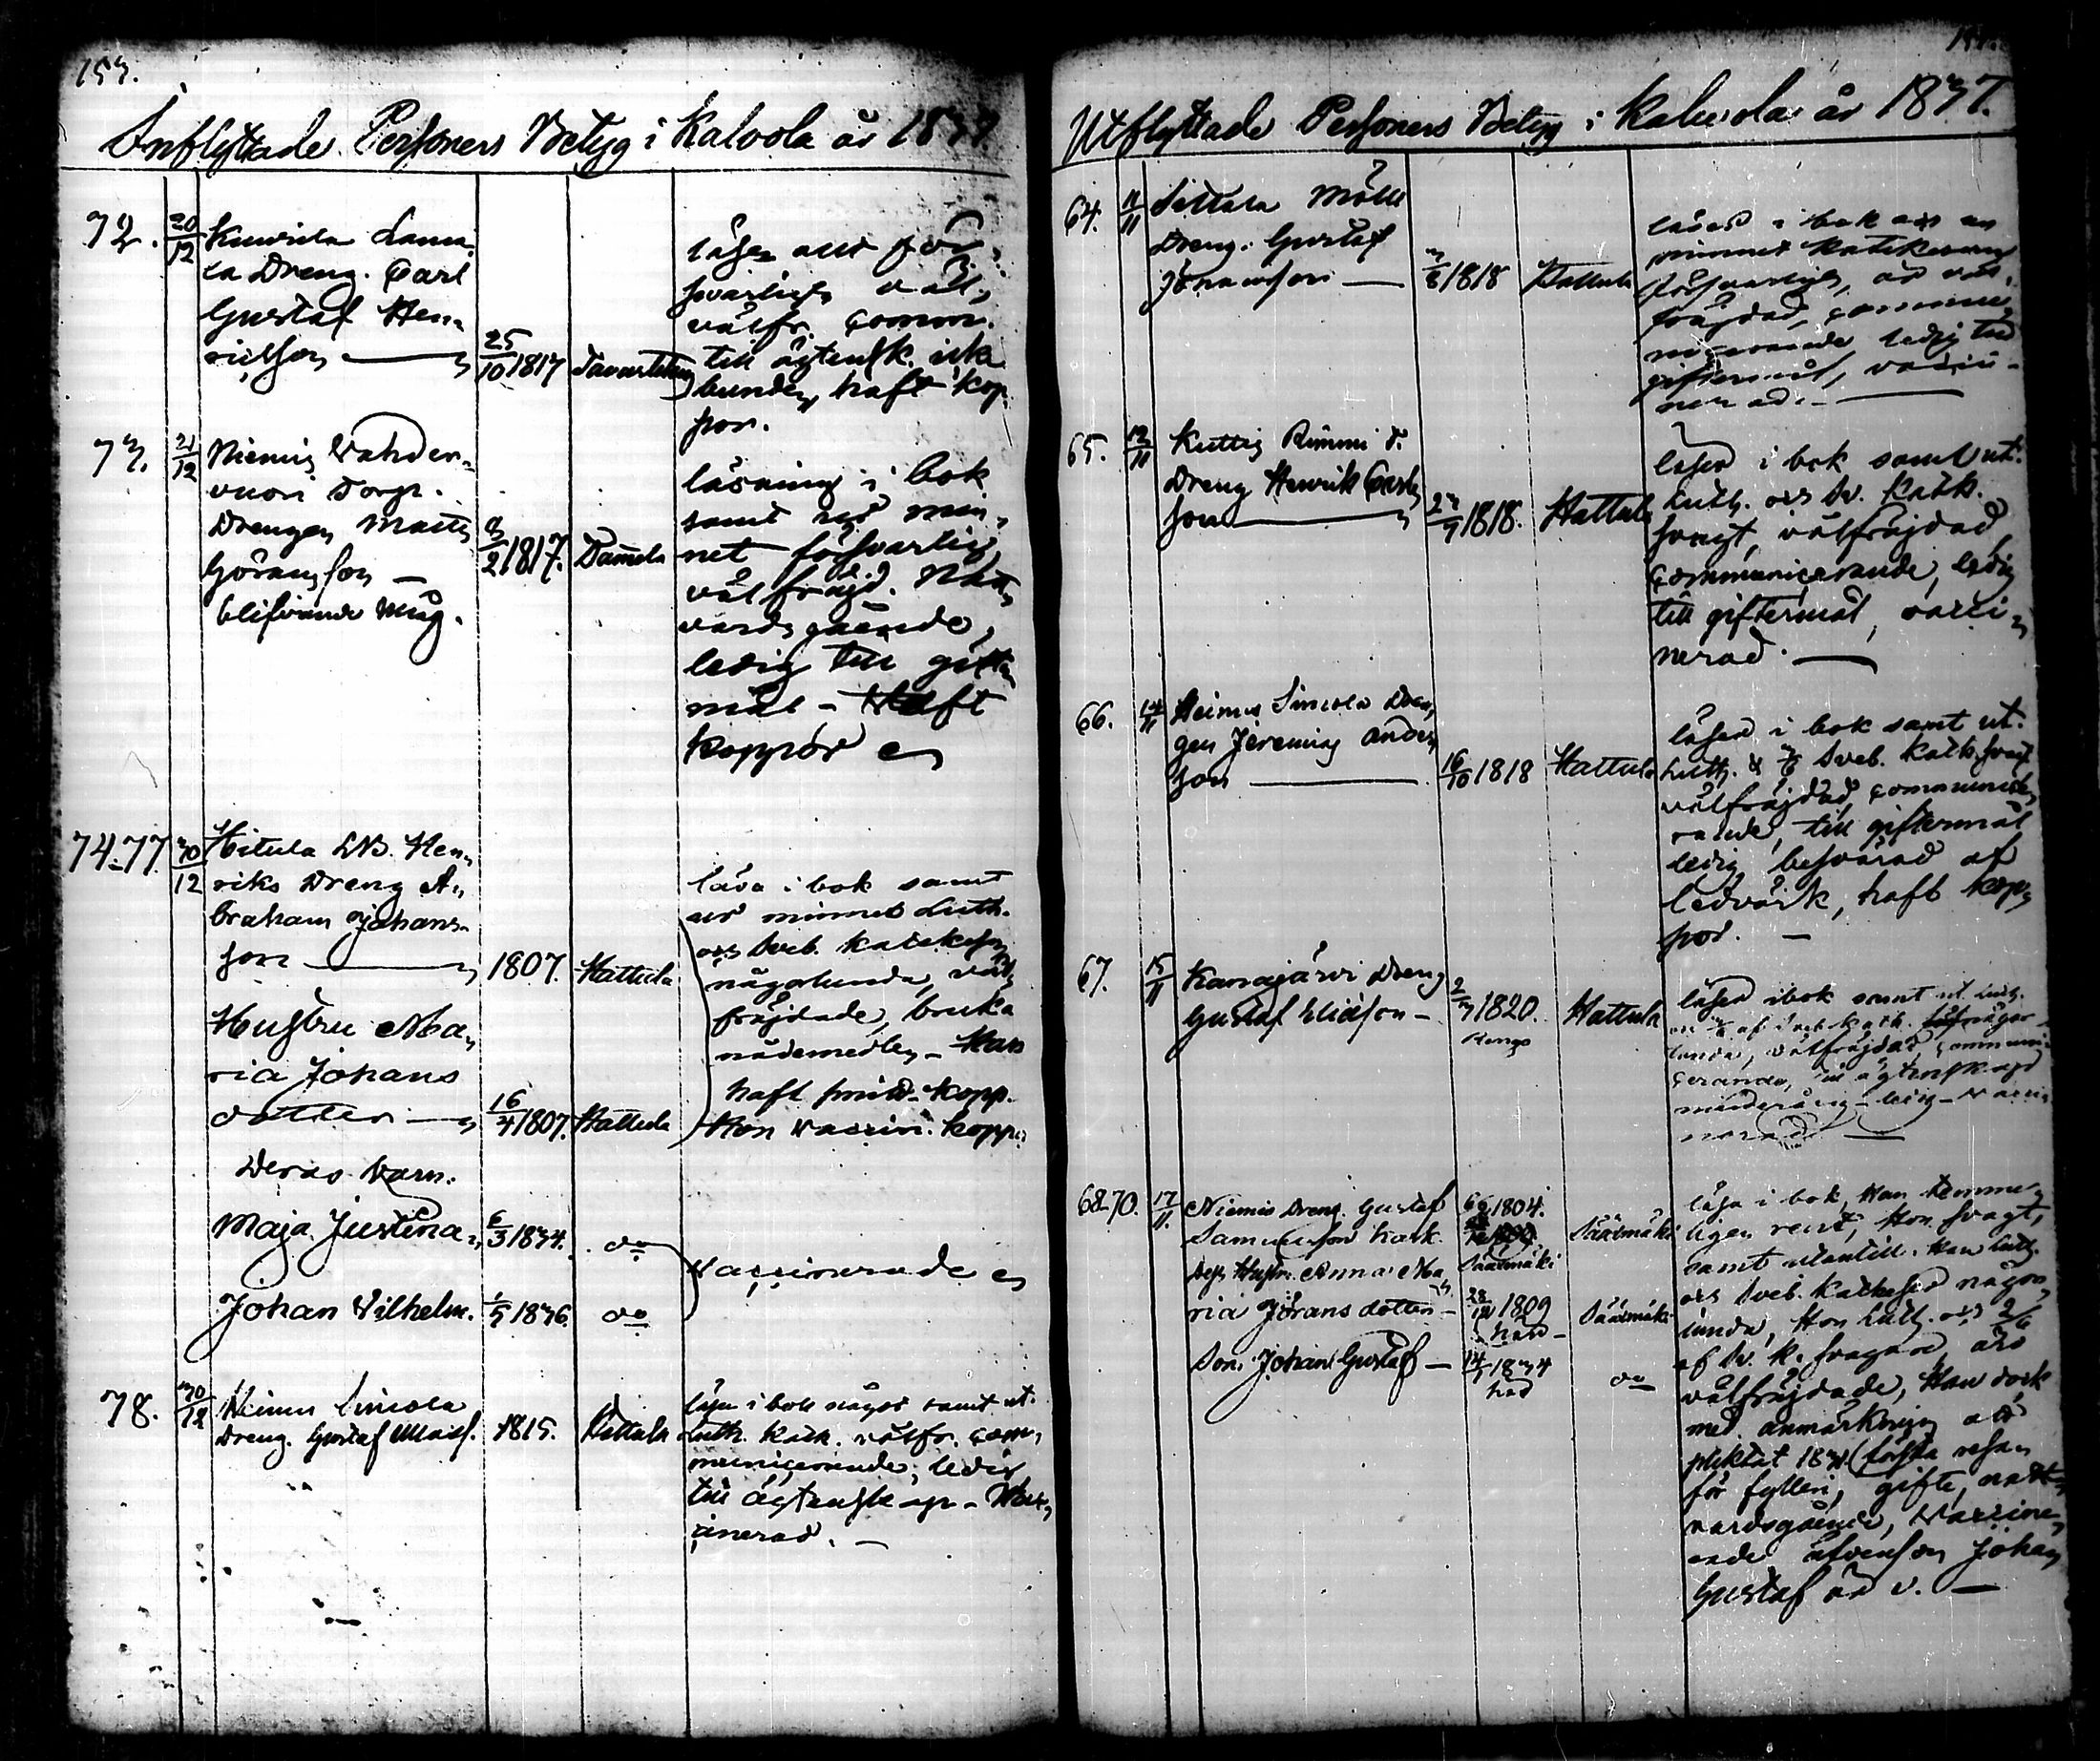 153.
Inflyttade Personers Betyg i Kalvola år 1837.
72. 20/12 Kuurila Lau
la Dreng. Carl
Gustaf Hen-
ricson — 25/10 1817 Tavastehus
läser all för-
svarligt väl,
välfr. comm.
till ägtensk. icke
bunden, haft kop-
por.
73. 21/12 Niemis Vahder-
vuori Torp.
Drengen Matts
Göransson —
blifvande Måg.
8/2 1817. Tammela
läsning i bok
samt ur min-
net försvarlig,
välfräjd. Natt-
vardsgående,
ledig till gifter-
mål - Haft
koppor
74-77. 30/12 Hitula LB. Hen-
riks Dreng A-
braham Johans-
son — 1807. Hattula
Hustru Ma-
ria Johans
dotter — 16/4 1807. Hattula
läsa i bok samt
ur minnet Luth.
och Sveb. Kateches
någorlunda, väl-
fräjdade, bruka
nådemedlen - Han
haft småkopp.
Hon vaccin. kopp.
Deras Barn.
Maja Justina 6/3 1834. do
Johan Vilhelm. 1/5 1836. do
Vaccinerade
78. 30/12 Heinu Simola
Dreng. Gustaf Matss. 1815. Hattula
läser i bok något samt ut.
Luth. Kat. välfr. com-
municerande, ledig
till ägtenskap - Vac-
cinerad. —
Utflyttade Personers Betyg i Kalvola år 1837.
64. 11/11 Sittala Mölle
Dreng. Gustaf
Johansson — 3/6 1818 Hattula
läser i bok och ur
minnet Katekesen
försvarligt, är väl-
fräjdad, commu-
nicerande ledig till
giftermål, vacci-
nerad. —
65. 12/11 Kuttis Rimmi T.
Dreng Henrik Carls
son — 23/9 1818. Hattula
läser i bok samt ut.
Luth. och Sv. Katk.
svagt, välfräjdad,
communicerande, ledig
till giftermål, vacci-
nerad. —
66. 14/11 Heinus Simola Dren-
gen Jeremias Anders
son — 16/10 1818 Hattula
läser i bok samt ut.
Luth. & Sveb. Katk. svagt
välfräjdad, communice-
rande, till giftermål
ledig, besvärad af
ledvärk, haft kop-
por. —
67. 15/11 Kanajärvi Dreng
Gustaf Eliasson - 2/3 1820. Hattula
Rengo
läser i bok samt ut. Luth.
af Sveb. Kath. någor-
lunda, välfräjdad, communi-
cerande, till ägtenskap
minderårig - ledig - vacci-
nerad —
68-70. 17/11. Niemis Dreng. Gustaf
Samuelsson Kark
Dess Hustru Anna Ma-
ria Jörans dotter -
Son. Johan Gustaf —
1804.
Sääxmäki
28/12 1809
14/1 1834
Sääxmäki
Sääxmäki
do
läsa i bok, Han temme-
ligen rent, Hon svagt,
samt utantill. Han Luth.
och Sveb. Katkeser någor-
lunda, Hon Luth. och 2/6
af Sv. K. svagare, äro
välfräjdade, Han dock
med anmärkning att
pliktat 1831 första resan
för fylleri, gifte, natt-
vardsgående, vaccine-
rade äfvensom Johan
Gustaf är v. —